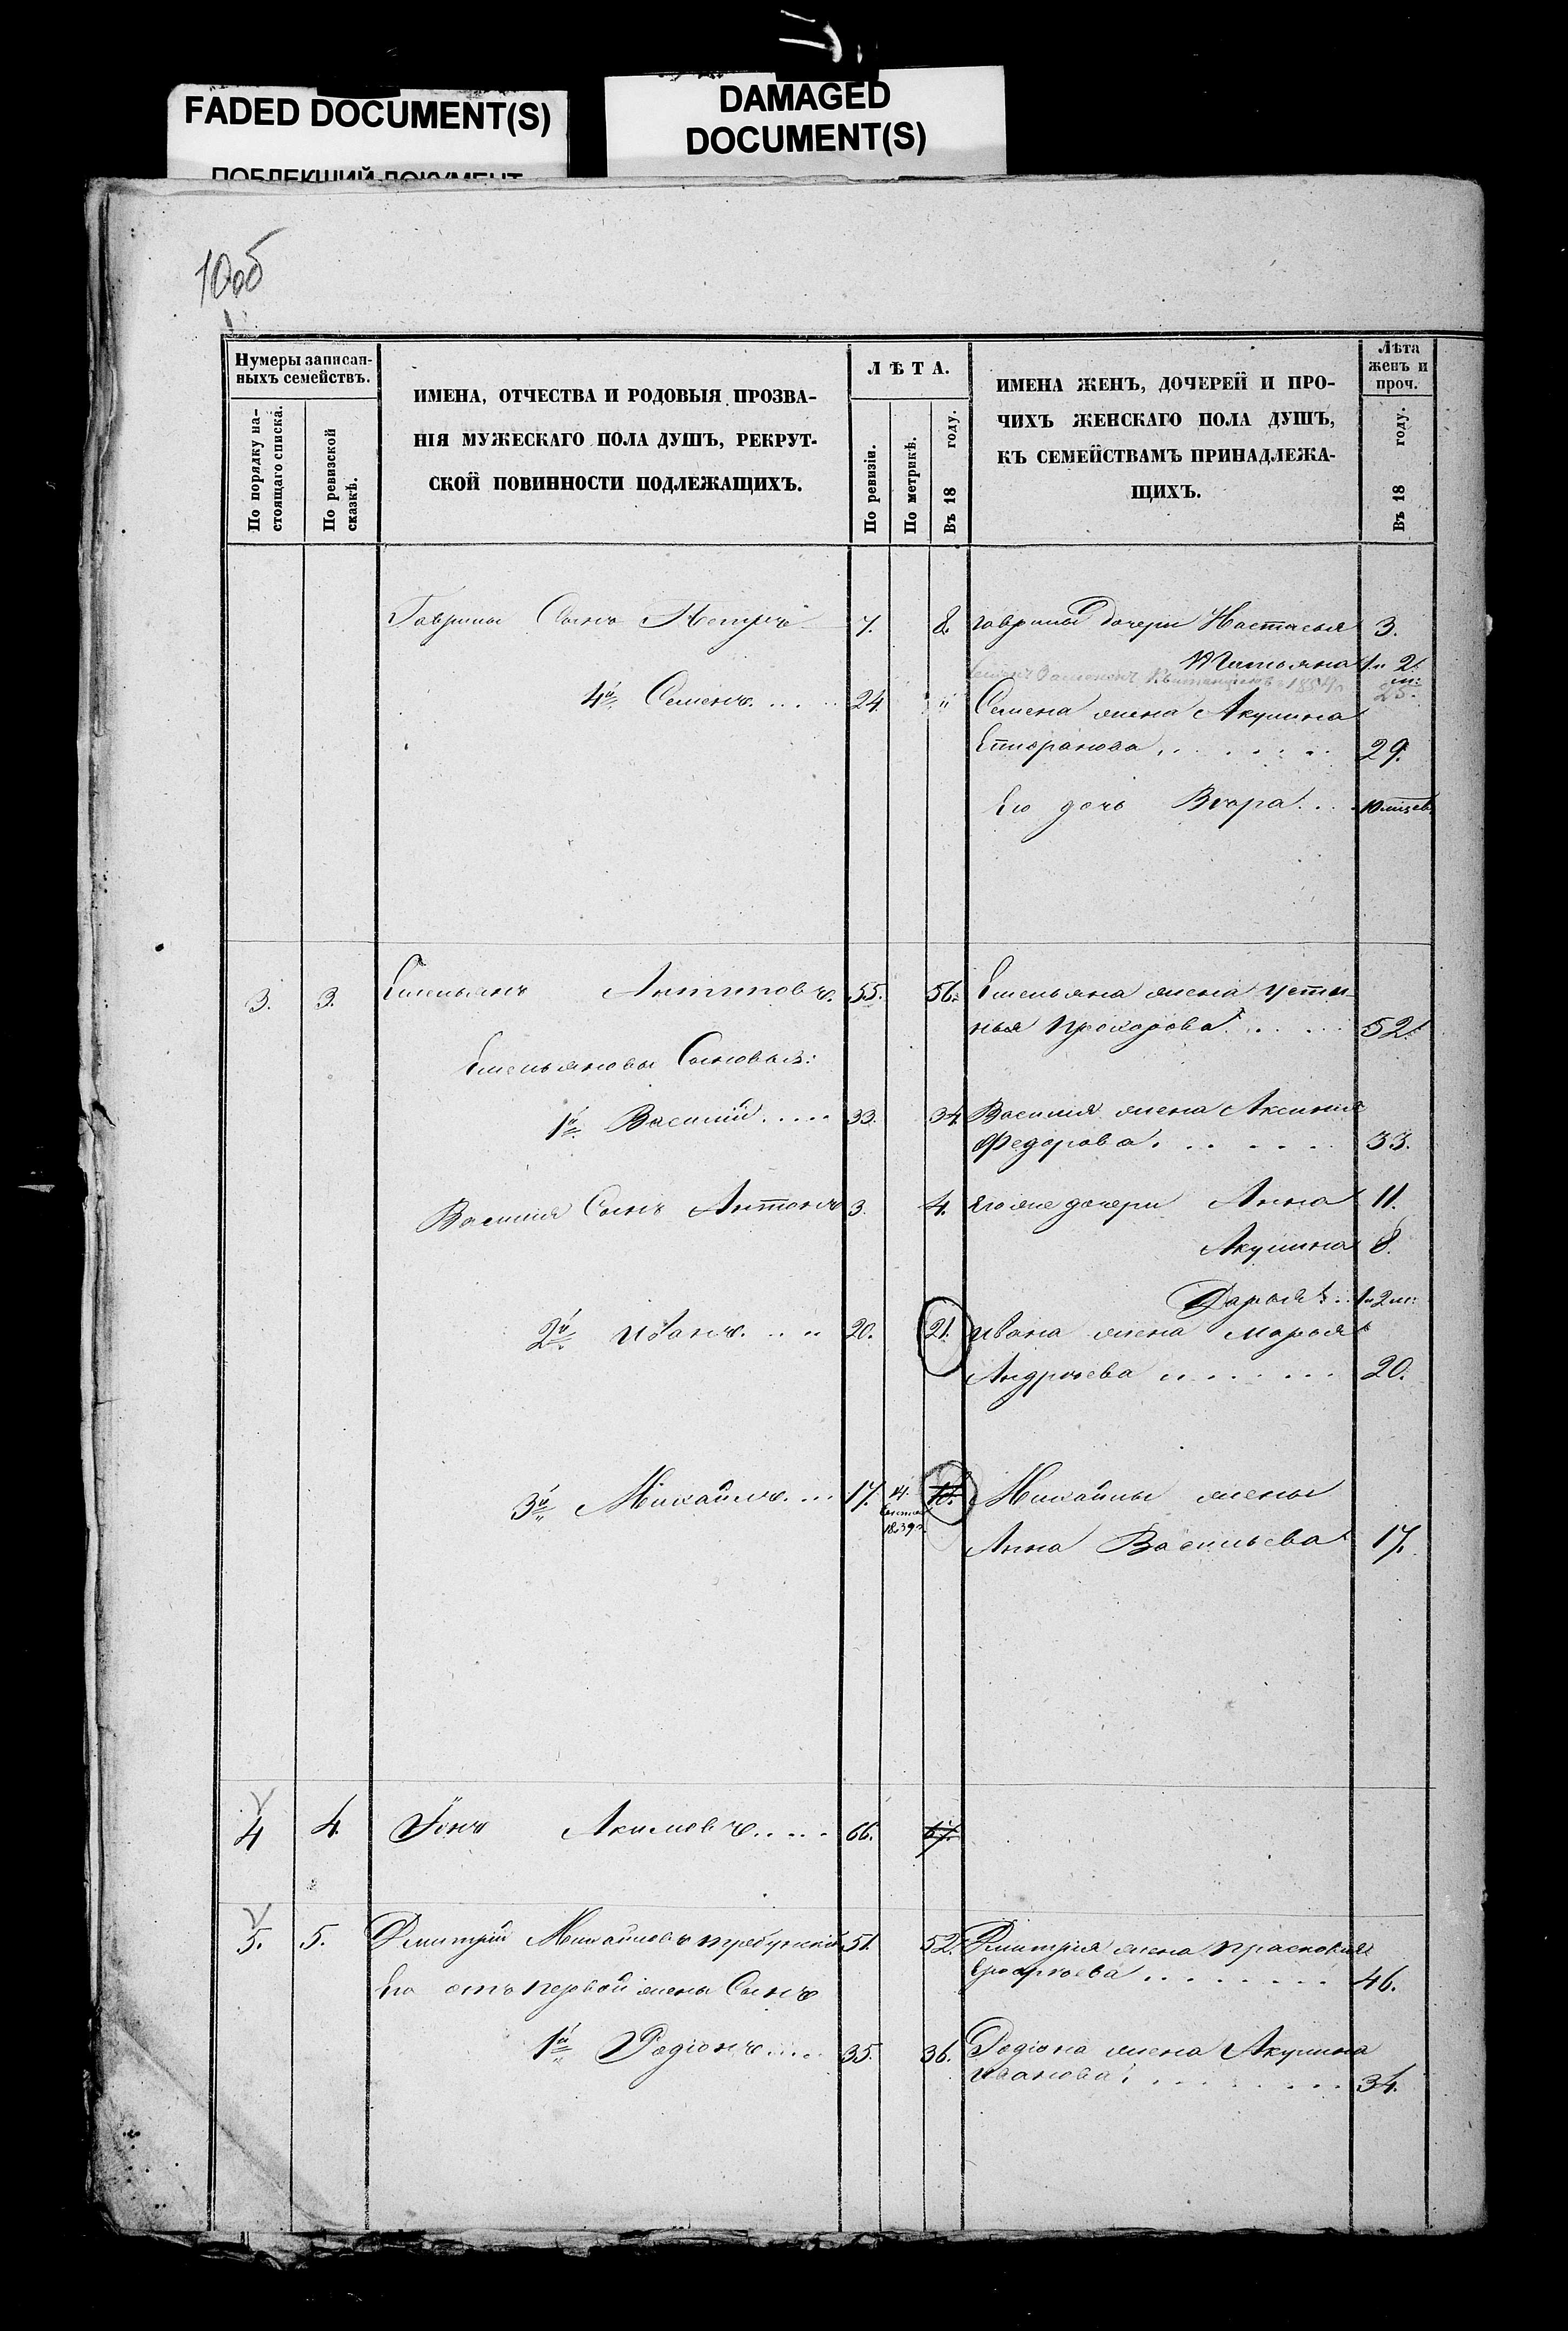 FADED DOCUMENT(S)
ПОБЛЕКШИЙ ДОКУМЕНТ
DAMAGED
DOCUMENT(S)
10об
Нумеры записан-
ныхъ семействъ.
По порядку на-
стоящаго списка.
По ревизской
сказкѣ.
ИМЕНА, ОТЧЕСТВА И РОДОВЫЯ ПРОЗВА-
НІЯ МУЖЕСКАГО ПОЛА ДУШЪ, РЕКРУТ-
СКОЙ ПОВИННОСТИ ПОДЛЕЖАЩИХЪ.
ЛѢТА.
По ревизіи.
По метрикѣ.
Въ 18 году.
ИМЕНА ЖЕНЪ, ДОЧЕРЕЙ И ПРО-
ЧИХЪ ЖЕНСКАГО ПОЛА ДУШЪ,
КЪ СЕМЕЙСТВАМЪ ПРИНАДЛЕЖА-
ЩИХЪ.
Лѣта
женъ и
проч.
Въ 18 году.
Гаврилы Сынъ Петръ 7. 8. Гаврилы дочери Настасья 3.
Татьяна 1 и 2 м:
4й Семенъ..... 24. " Семена жена Акулина 25.
29.
Его дочь Вѣра... 10 мѣсев.
3. 3. Емельянъ Антиповъ. 55. 56. Емельяна жена Усти-
нья Прохорова..... 52.
Емельяновы Сыновья:
1й Василій..... 33. 34. Василия жена Аксинья
Федорова...... 33.
Василия Сынъ Антонъ 3. 4. Его же дочери Анна 11.
Акулина 8.
Дарья.. 1 и 2 м:
2й Иванъ.... 20. 21. Ивана жена Марья
Андреева...... 20.
3й Михайла.... 17. 14. 18. Михайлы жены
1839 г.
Анна Васильева 17.
4 4. Іонъ Акимовъ..... 66. 67.
5. 5. Дмитрій Михайловъ 51. 52. Дмитрия жена Прасковья
46.
Его отъ первой жены Сынъ
1й Родіонъ.... 35. 36. Родіона жена Акулина
Иванова........ 34.